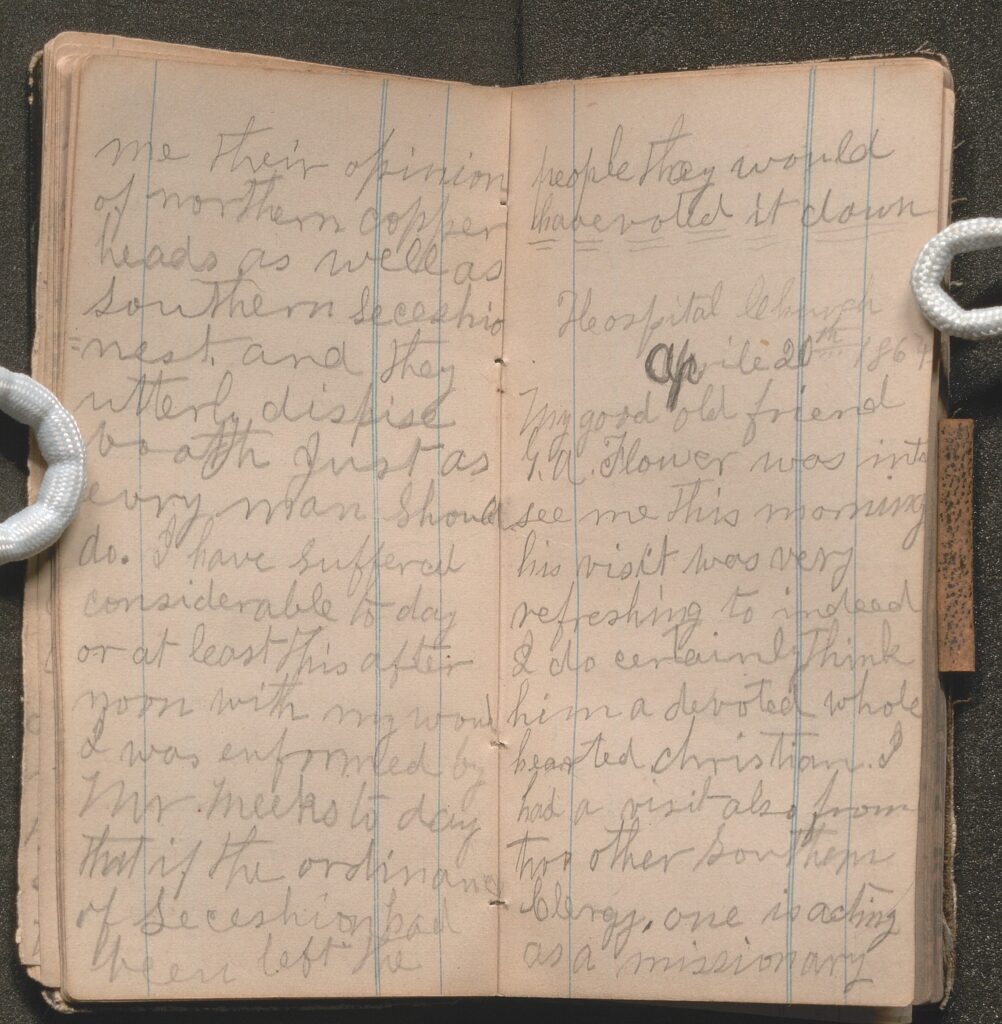 me their opinion
of northern copper
heads as well as
southern Seceshio
=nest. and they
utterly dispise
boath Just as
evry man Should
do. I have Suffered
considerable to day
or at least this after
noon with my wound
I was enformed by
Mr. Meeks to day
that if the ordinance
of Seceshion had
been left the
people they would
have voted it down
Heospital Church
Aprile 20th 1864
My good old friend
G. A. Flower was into
see me this morning
his visit was very
refreshing to indeed
I do certainly think
him a devoted whole
hearted christian. I
had a visit also from
two other Southern
Clergy. one is acting
as a missionary